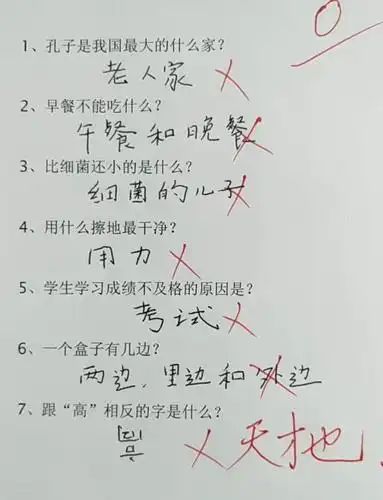 0
1、孔子是我国最大的什么家？
老人家
2、早餐不能吃什么？
午餐和晚餐
3、比细菌还小的是什么？
细菌的儿子
4、用什么擦地最干净？
用力
5、学生学习成绩不及格的原因是？
考试
6、一个盒子有几边？
两边，里边和外边
7、跟“高”相反的字是什么？
天才也